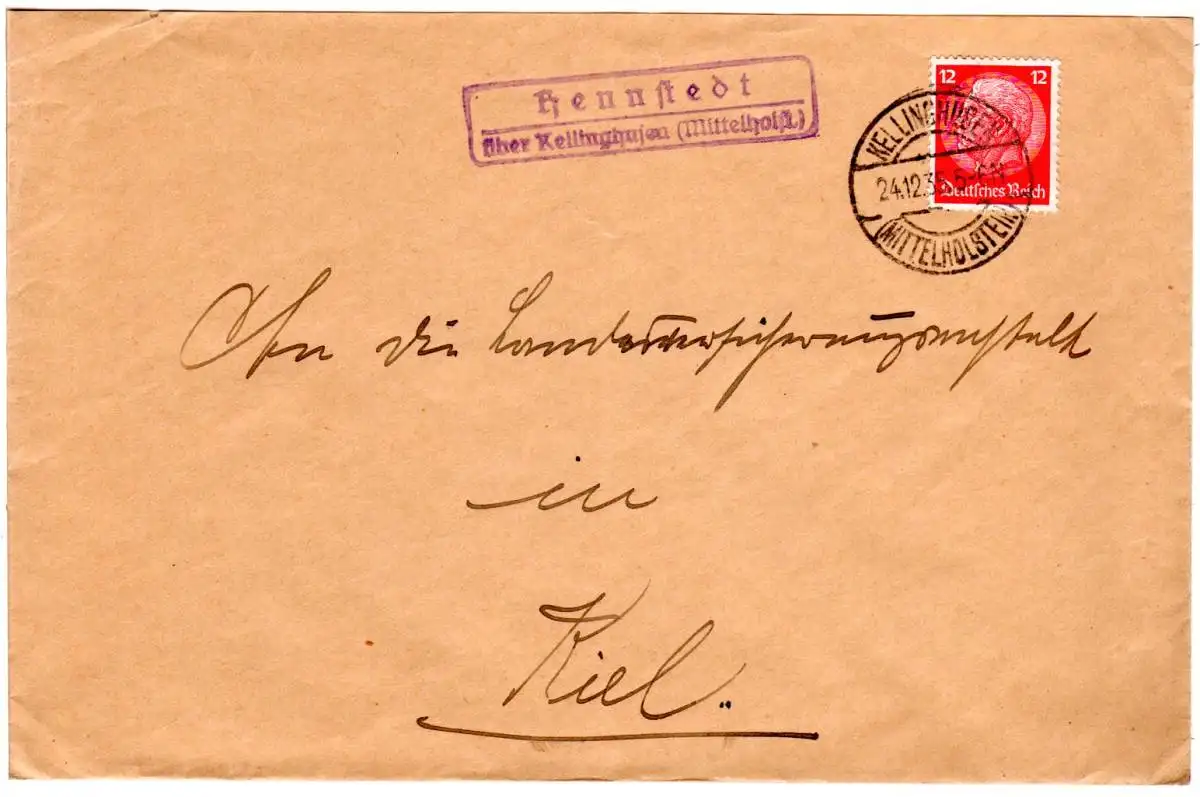 Hennstedt
über Kellinghusen (Mittelholst.)
12 12
Deutsches Reich
KELLINGHUSEN
24.12.3
MITTELHOLSTEIN
An die Landesversicherungsanstalt
in
Kiel.